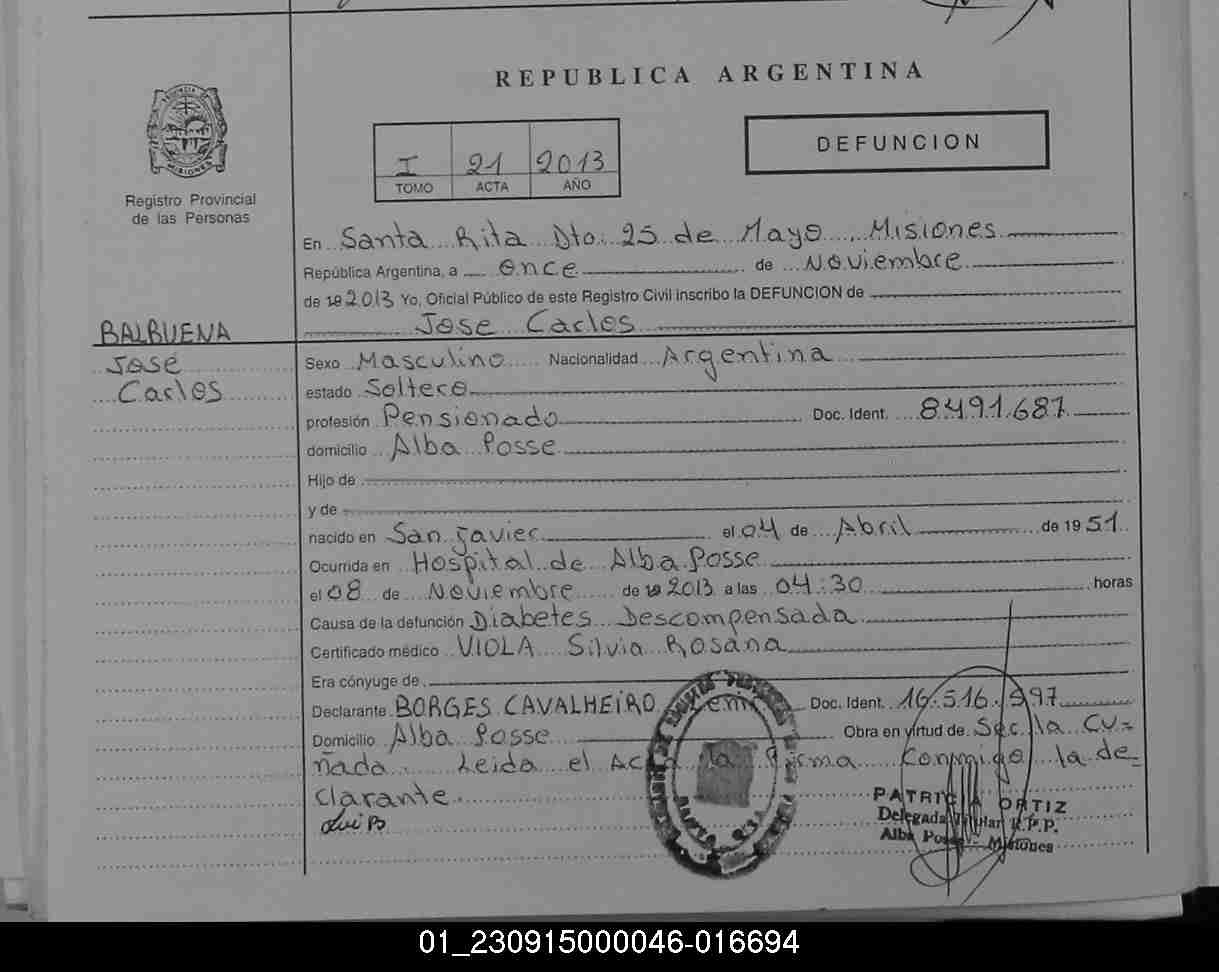 REPUBLICA ARGENTINA
PROVINCIA DE MISIONES
Registro Provincial
de las Personas
I 21 2013
TOMO ACTA AÑO
DEFUNCION
En Santa Rita Dto. 25 de Mayo, Misiones
República Argentina, a once de Noviembre
de 19 2013 Yo, Oficial Público de este Registro Civil inscribo la DEFUNCION de
BALBUENA Jose Carlos
José
Carlos
Sexo Masculino Nacionalidad Argentina
estado Soltero
profesión Pensionado Doc. Ident. 8.491.687
domicilio Alba Posse
Hijo de
y de
nacido en San Javier el 04 de Abril de 1951
Ocurrida en Hospital de Alba Posse
el 08 de Noviembre de 19 2013 a las 04:30 horas
Causa de la defunción Diabetes Descompensada
Certificado médico VIOLA Silvia Rosana
Era cónyuge de
Declarante BORGES CAVALHEIRO Doc. Ident. 16.516.597
Domicilio Alba Posse Obra en virtud de Ser la Cu=
ñada. Leida el Acta la firma Conmigo la de=
clarante.
PATRICIA ORTIZ
Delegada Titular R.P.P.
Alba Posse - Misiones
SANTA RITA
01_230915000046-016694